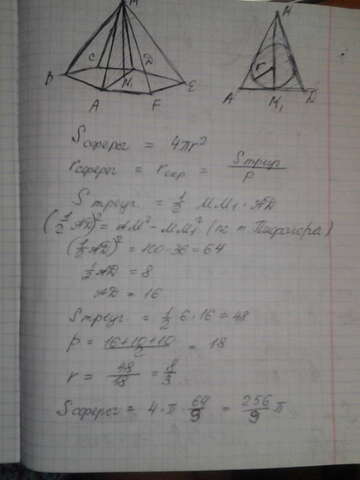 M
B C D E A F M₁
M
r
A M₁ D
Sсферы = 4πr²
rсферы = rокр = Sтреуг / P
Sтреуг = 1/2 MM₁ · AD
(1/2 AD)² = AM² - MM₁² (по т. Пифагора)
(1/2 AD)² = 100 - 36 = 64
1/2 AD = 8
AD = 16
Sтреуг = 1/2 6 · 16 = 48
P = (16+10+10)/2 = 18
r = 48/18 = 8/3
Sсферы = 4 · π · 64/9 = 256/9 π